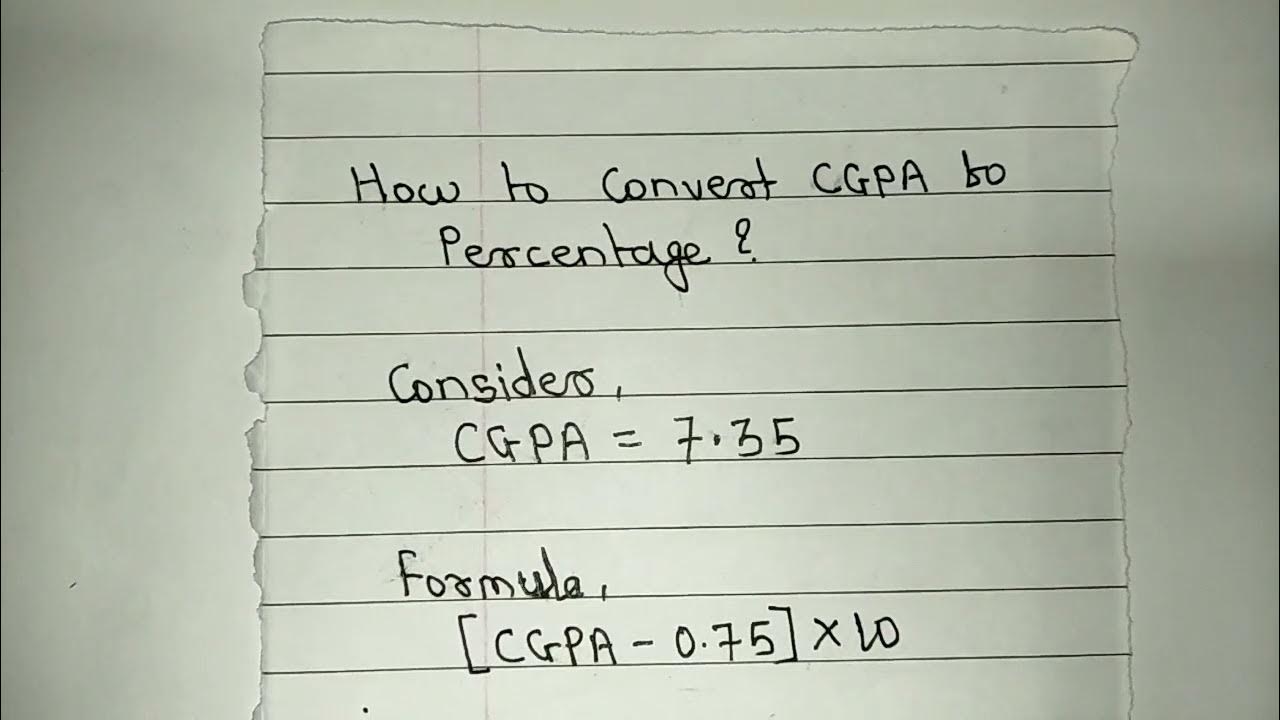 How to Convert CGPA to
Percentage?
Consider,
CGPA = 7.35
Formula,
[CGPA - 0.75] × 10